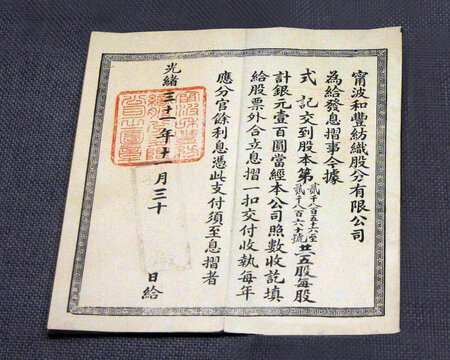 甯波和豐紡織股分有限公司
為給發息摺事今據
式記交到股本第貳千八百五十六至貳千八百六十號共五股每股
計銀元壹百圓當經本公司照數收訖填
給股票外合立息摺一扣交付收執每年
應分官餘利息憑此支付須至息摺者
光緒三十一年十月三十日給